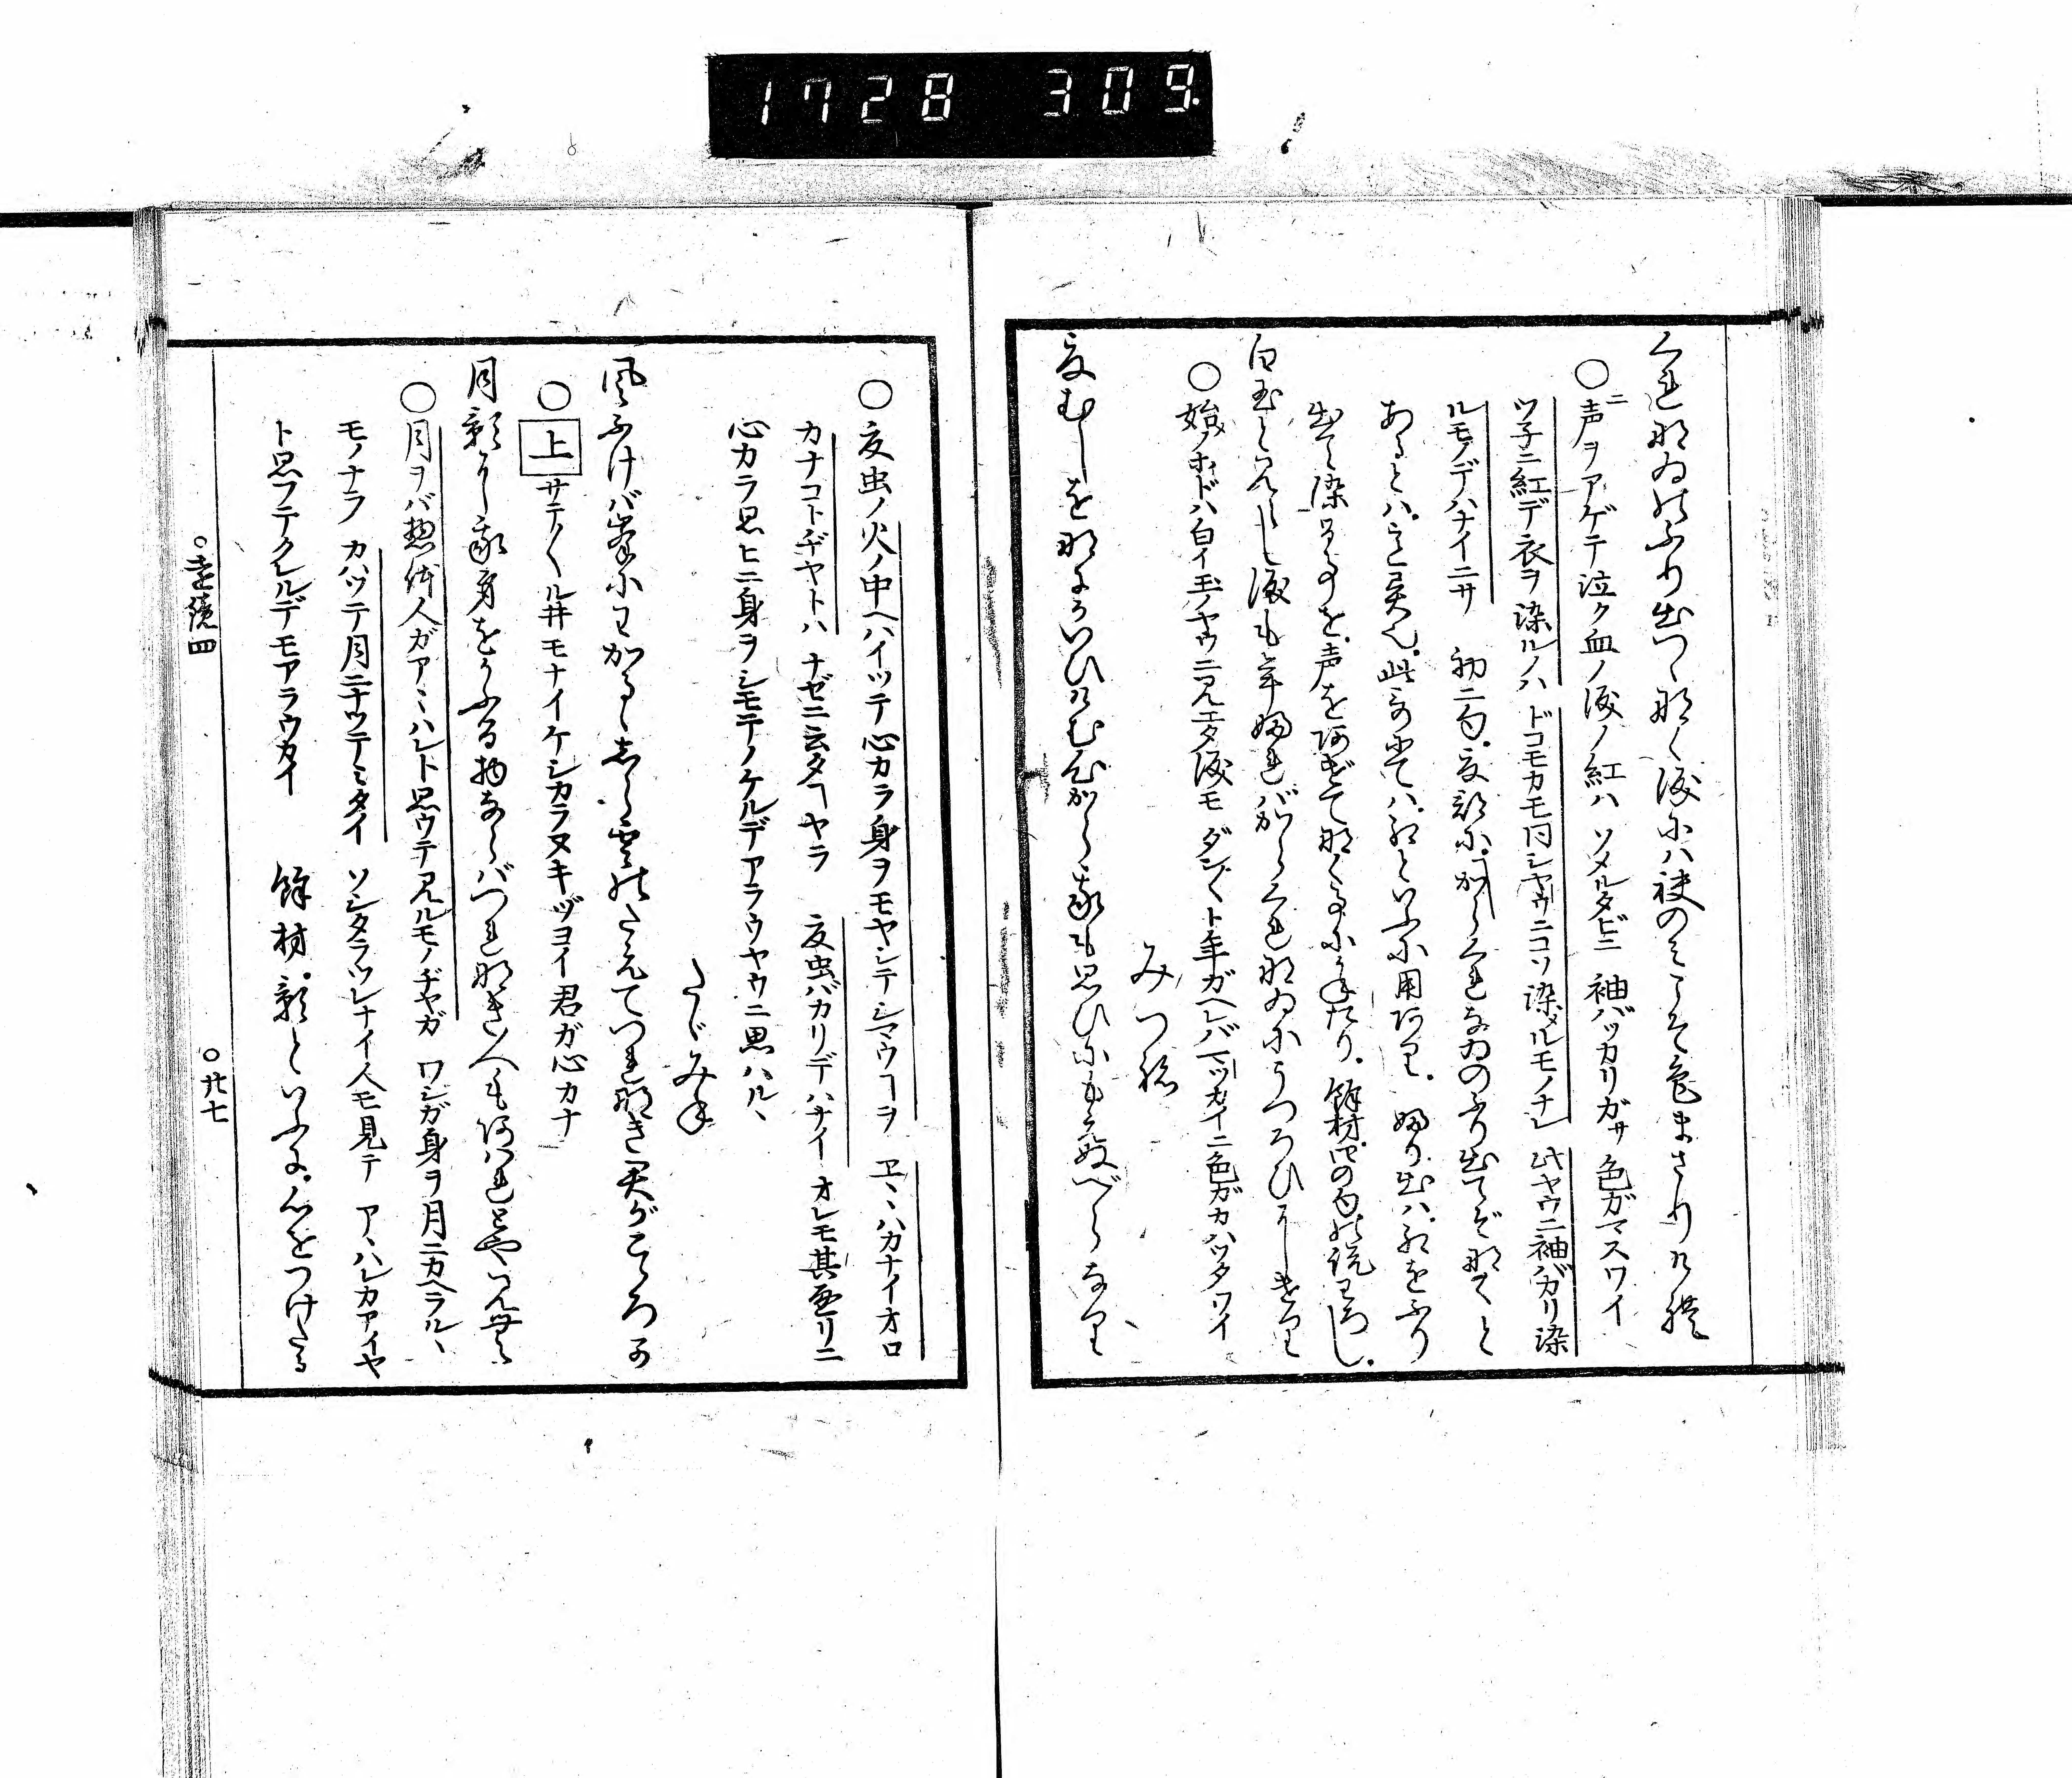 1728 309.
くれなゐのふり出つゝなく涙にハ袂のミこそ色まさりけれ
○声ヲアゲテ泣ク血ノ涙ノ紅ハ ソメルタビニ 袖バッカリガサ 色ガマスワイ
ツ子ニ紅デ衣ヲ染ルノハ ドコモカモ同シヤウニコソ染メルモノナレ 此ヤウニ袖バカリ染
ルモノデハナイニサ 初二句.夏部に.からくれなゐのふり出てぞなくと
あるとハ.こと異也.此哥にてハ.紅といふに用あり. ふり出ハ.紅をふり
出て染めるを.声をあげてなくにかねたり. 餘材.四の句の説わろし.
白玉と見えし涙も年ふれバからくれなゐにうつろひにけり
○始ノホドハ白イ玉ノヤウニ見エタ涙モ ダン〱ト年ガヘレバ マッカイニ色ガカハッタワイ
みつね
夏むしを何かいひけむ心から我も思ひにもえぬべらなり
○夏虫ノ火ノ中ヘハイッテ心カラ身ヲモヤシテシマウヿヲ ヱヽハカナイオロ
カナコトヂヤトハ ナゼニ云タヿヤラ 夏虫バカリデハナイ オレモ其通リニ
心カラ思ヒニ身ヲシモテノケルデアラウヤウニ思ハルヽ
たゞみね
風ふけバ峯にわかるゝしら雲のたえてつれなき君がこゝろか
○上サテ〱ル井モナイケシカラヌキヅヨイ君ガ心カナ
月影にわが身をかふる物ならバつれなき人もあはれとや見む
○月ヲバ惣体人ガアヽハレト思ウテ見ルモノヂヤガ ワシガ身ヲ月ニカヘラルヽ
モノナラ カハッテ月ニナッテミタイ ソシタラツレナイ人モ見テ アヽハレカアイヤ
ト思フテクレルデモアラウカイ 餘材.影といふに.心をつけたる
○遠鏡四
○廿七